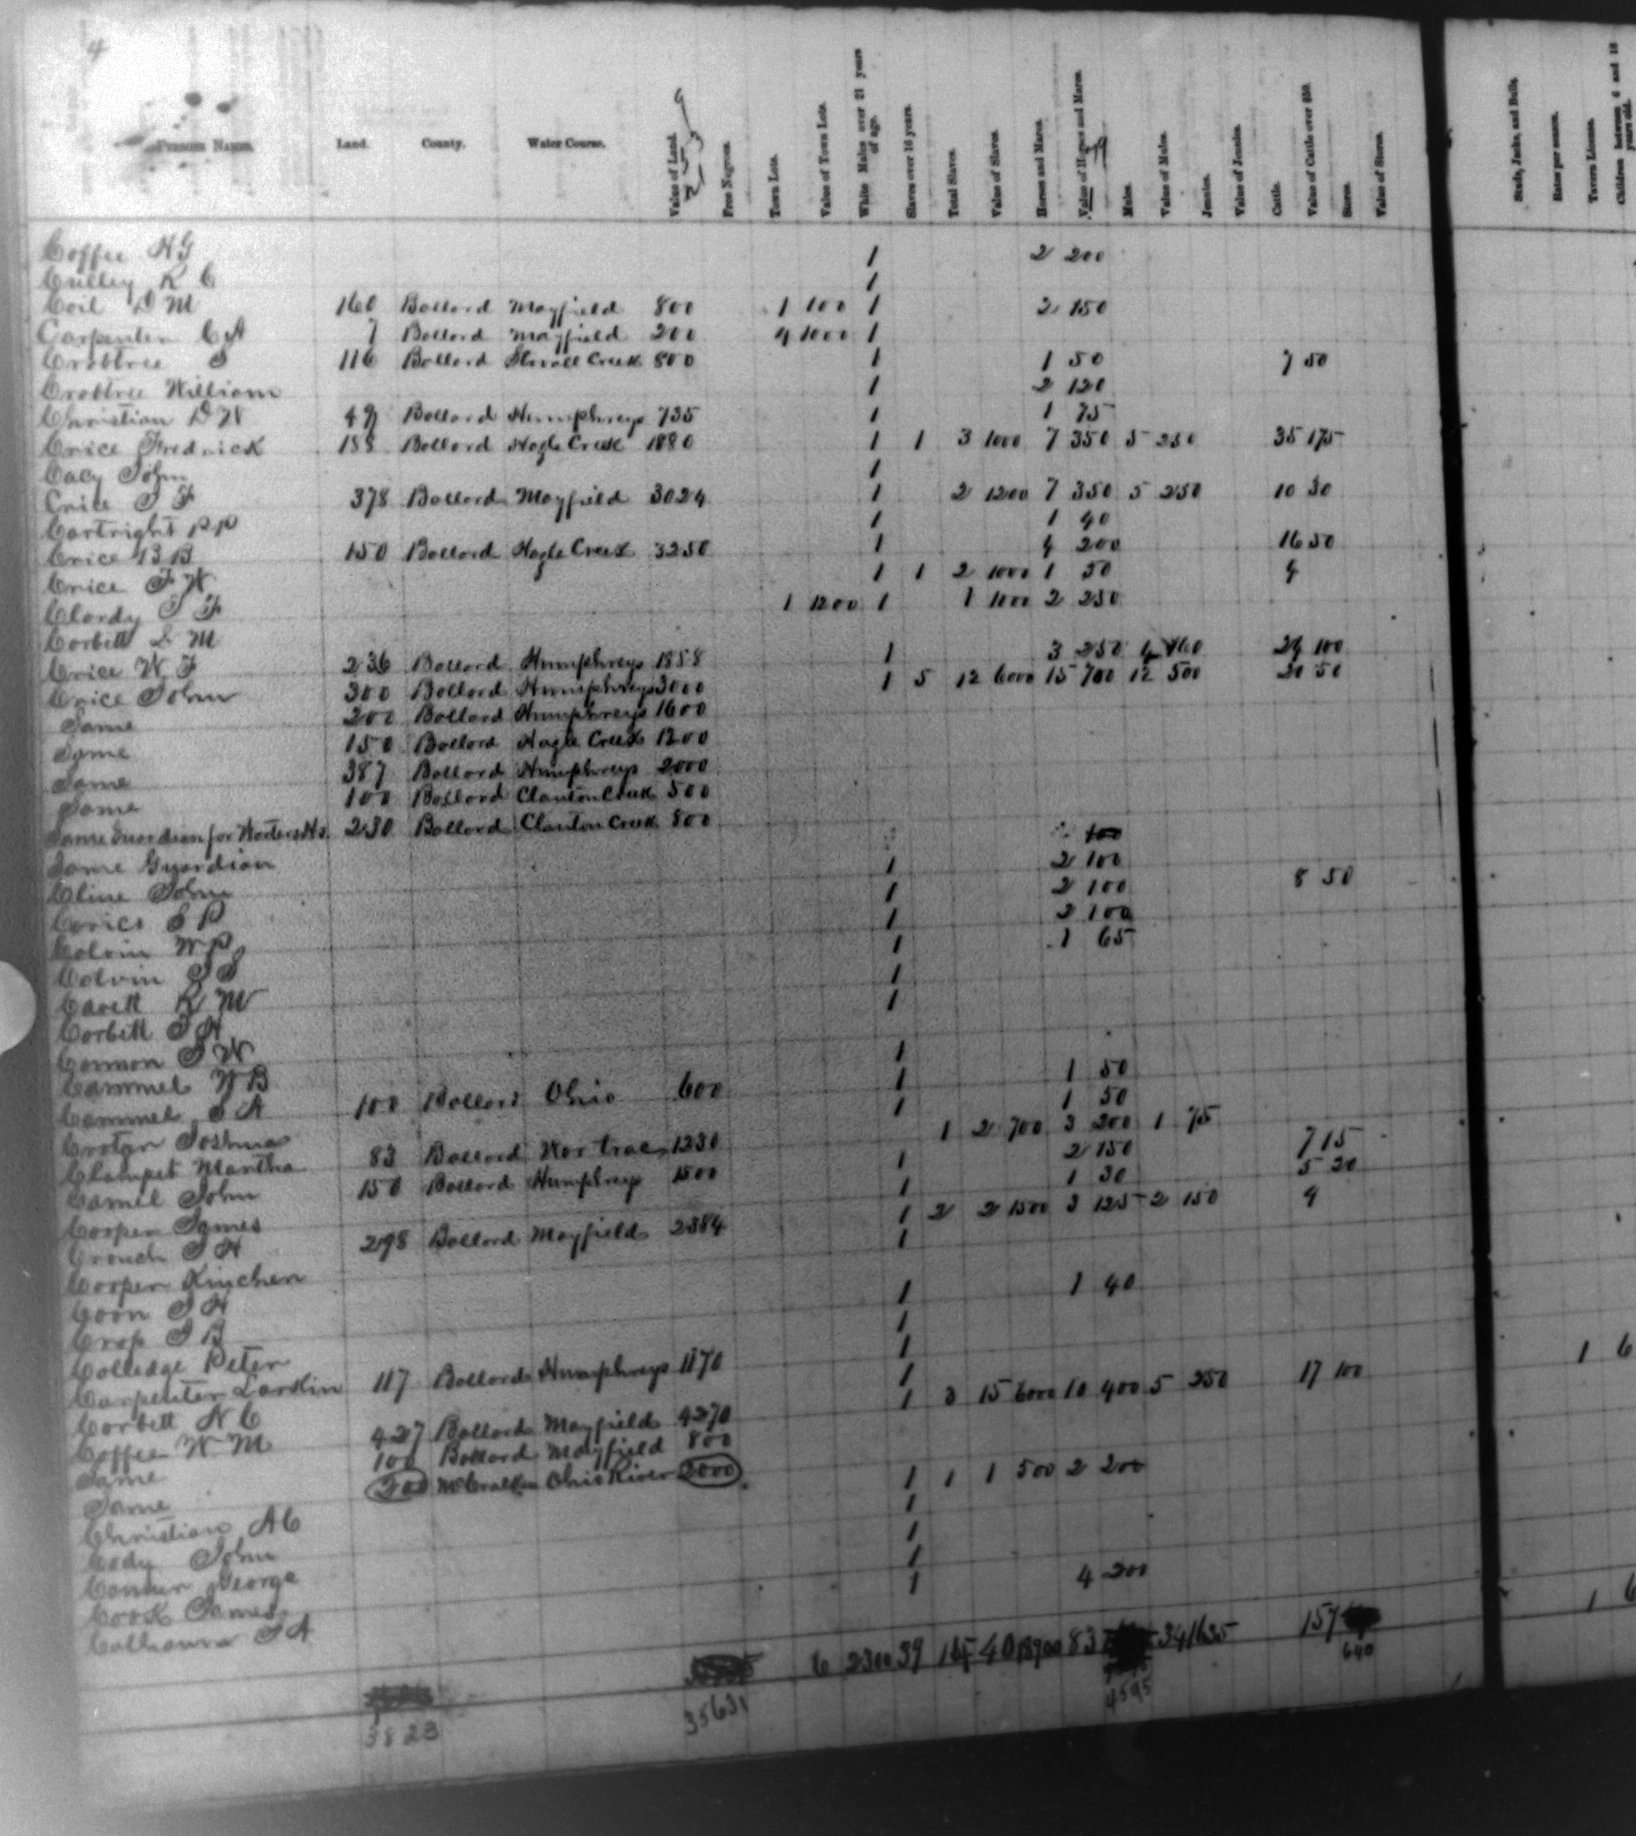 4
Persons Names. Land. County. Water Course. Value of Land. Free Negroes. Town Lots. Value of Town Lots. White Males over 21 years of age. Slaves over 16 years. Total Slaves. Value of Slaves. Horses and Mares. Value of Horses and Mares. Mules. Value of Mules. Jennies. Value of Jennies. Cattle. Value of Cattle over $50. Stores. Value of Stores. Studs, Jacks, and Bulls. Rates per season. Tavern License. Children between 6 and 18 years old.
Coffee H G 1 2 200
Culley R C 1
Coil D M 160 Ballard Mayfield 800 1 100 1 2 150
Carpenter C A 7 Ballard Mayfield 200 4 1000 1
Crabtree J 116 Ballard Creek 800 1 1 50 7 50
Crabtree William 1 2 120
Christian D W 49 Ballard Humphreys 735 1 1 75
Crice Fredrick 188 Ballard Hogle Creek 1880 1 1 3 1000 7 350 5 250 35 175
Cacy John 1
Crice J F 378 Ballard Mayfield 3024 1 2 1200 7 350 5 250 10 30
Cartright P P 1 1 40
Crice B B 150 Ballard Hogle Creek 3250 1 4 200 16 50
Crice J W 1 1 2 1000 1 50 9
Clardy J F 1 1200 1 1 1000 2 250
Corbett D M
Crice W F 236 Ballard Humphreys 1888 1 3 250 4 160 24 100
Crice John 300 Ballard Humphreys 3000 1 5 12 6000 15 700 12 500 20 50
Same 200 Ballard Humphreys 1600
Same 150 Ballard Hogle Creek 1200
Same 387 Ballard Humphreys 2000
Same 100 Ballard Clanton Creek 500
Same Guardian for 230 Ballard Clanton Creek 800
Same Guardian 100
Cline John 1 2 100
J P 1 2 100 8 50
Colvin W P 1 2 100
Colvin J J 1 1 65
Cavett R M 1
Corbett J H 1
Cannon J W
Cammel W B 1 1 50
Cammel J A 100 Ballard Ohio 600 1 1 50
Joshua 1 1 2 700 3 200 1 75
Clampet Martha 83 Ballard 1230 2 150 7 15
Camel John 150 Ballard Humphreys 1500 1 1 30 5 20
Cooper James 1 2 2 1500 3 125 2 150 9
Crouch J H 298 Ballard Mayfield 2384 1
Cooper Kinchen 1
Coon J H 1 1 40
Crop J B 1
Colledge Peter 1
Carpenter Larkin 117 Ballard Humphreys 1170 1 1 6
Corbett N C 1 3 15 6000 10 400 5 250 17 100
Coffee W M 427 Ballard Mayfield 4270
Same 100 Ballard Mayfield 800
Same 200 McCracken Ohio River 2000
Christian A C 1 1 1 500 2 200
Cody John 1
George 1
Cook James 1
Calhoun J A 1 4 200
6 2300 39 40 18900 83 34 1635 157 1 6
3823 35631 4595 640